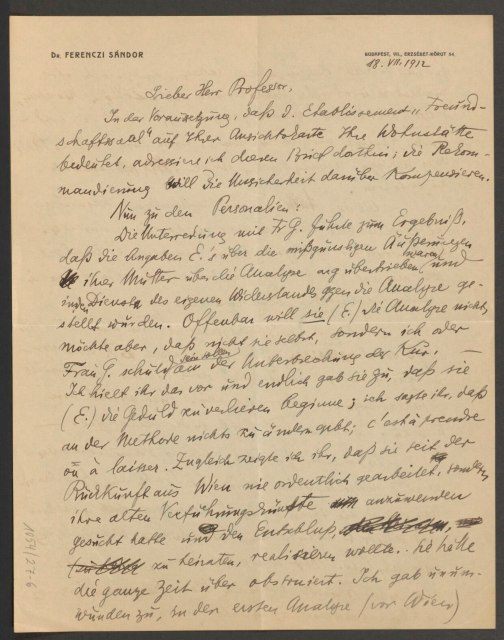 Dr. FERENCZI SÁNDOR
BUDAPEST, VII., ERZSÉBET-KÖRUT 54.
18. VII. 1912
Lieber Herr Professor,
In der Voraussetzung, daß d. Etablissement „Freund-
schaftssaal" auf Ihrer Ansichtskarte Ihre Wohnstätte
bedeutet, adressiere ich diesen Brief dorthin; die Rekom-
mandierung will die Unsicherheit darüber kompensieren.
Nun zu den Personalien:
Die Unterredung mit Fr G. führte zum Ergebniß,
daß die Angaben E.'s über die mißgünstigen Äußerungen
ihrer Mutter über die Analyse arg übertrieben waren und
in den Dienst des eigenen Widerstandes gegen die Analyse ge-
stellt wurden. Offenbar will sie (E.) die Analyse nicht,
möchte aber, daß nicht sie selbst, sondern ich oder
Frau G. schuld sein sollen an der Unterbrechung der Kur.
Ich hielt ihr das vor und endlich gab sie zu, daß sie
(E.) die Geduld zu verlieren beginne; ich sagte ihr, daß
an der Methode nichts zu ändern gibt; c'est à prendre
où à laisser. Zugleich zeigte ich ihr, daß sie seit der
Rückkunft aus Wien nie ordentlich gearbeitet, sondern
ihre alten Verführungskünste anzuwenden
gesucht hatte und den Entschluß,
zu heiraten, realisieren wollte. Sie hätte
die ganze Zeit über obstruiert. Ich gab unum-
wunden zu, in der ersten Analyse (vor Wien)